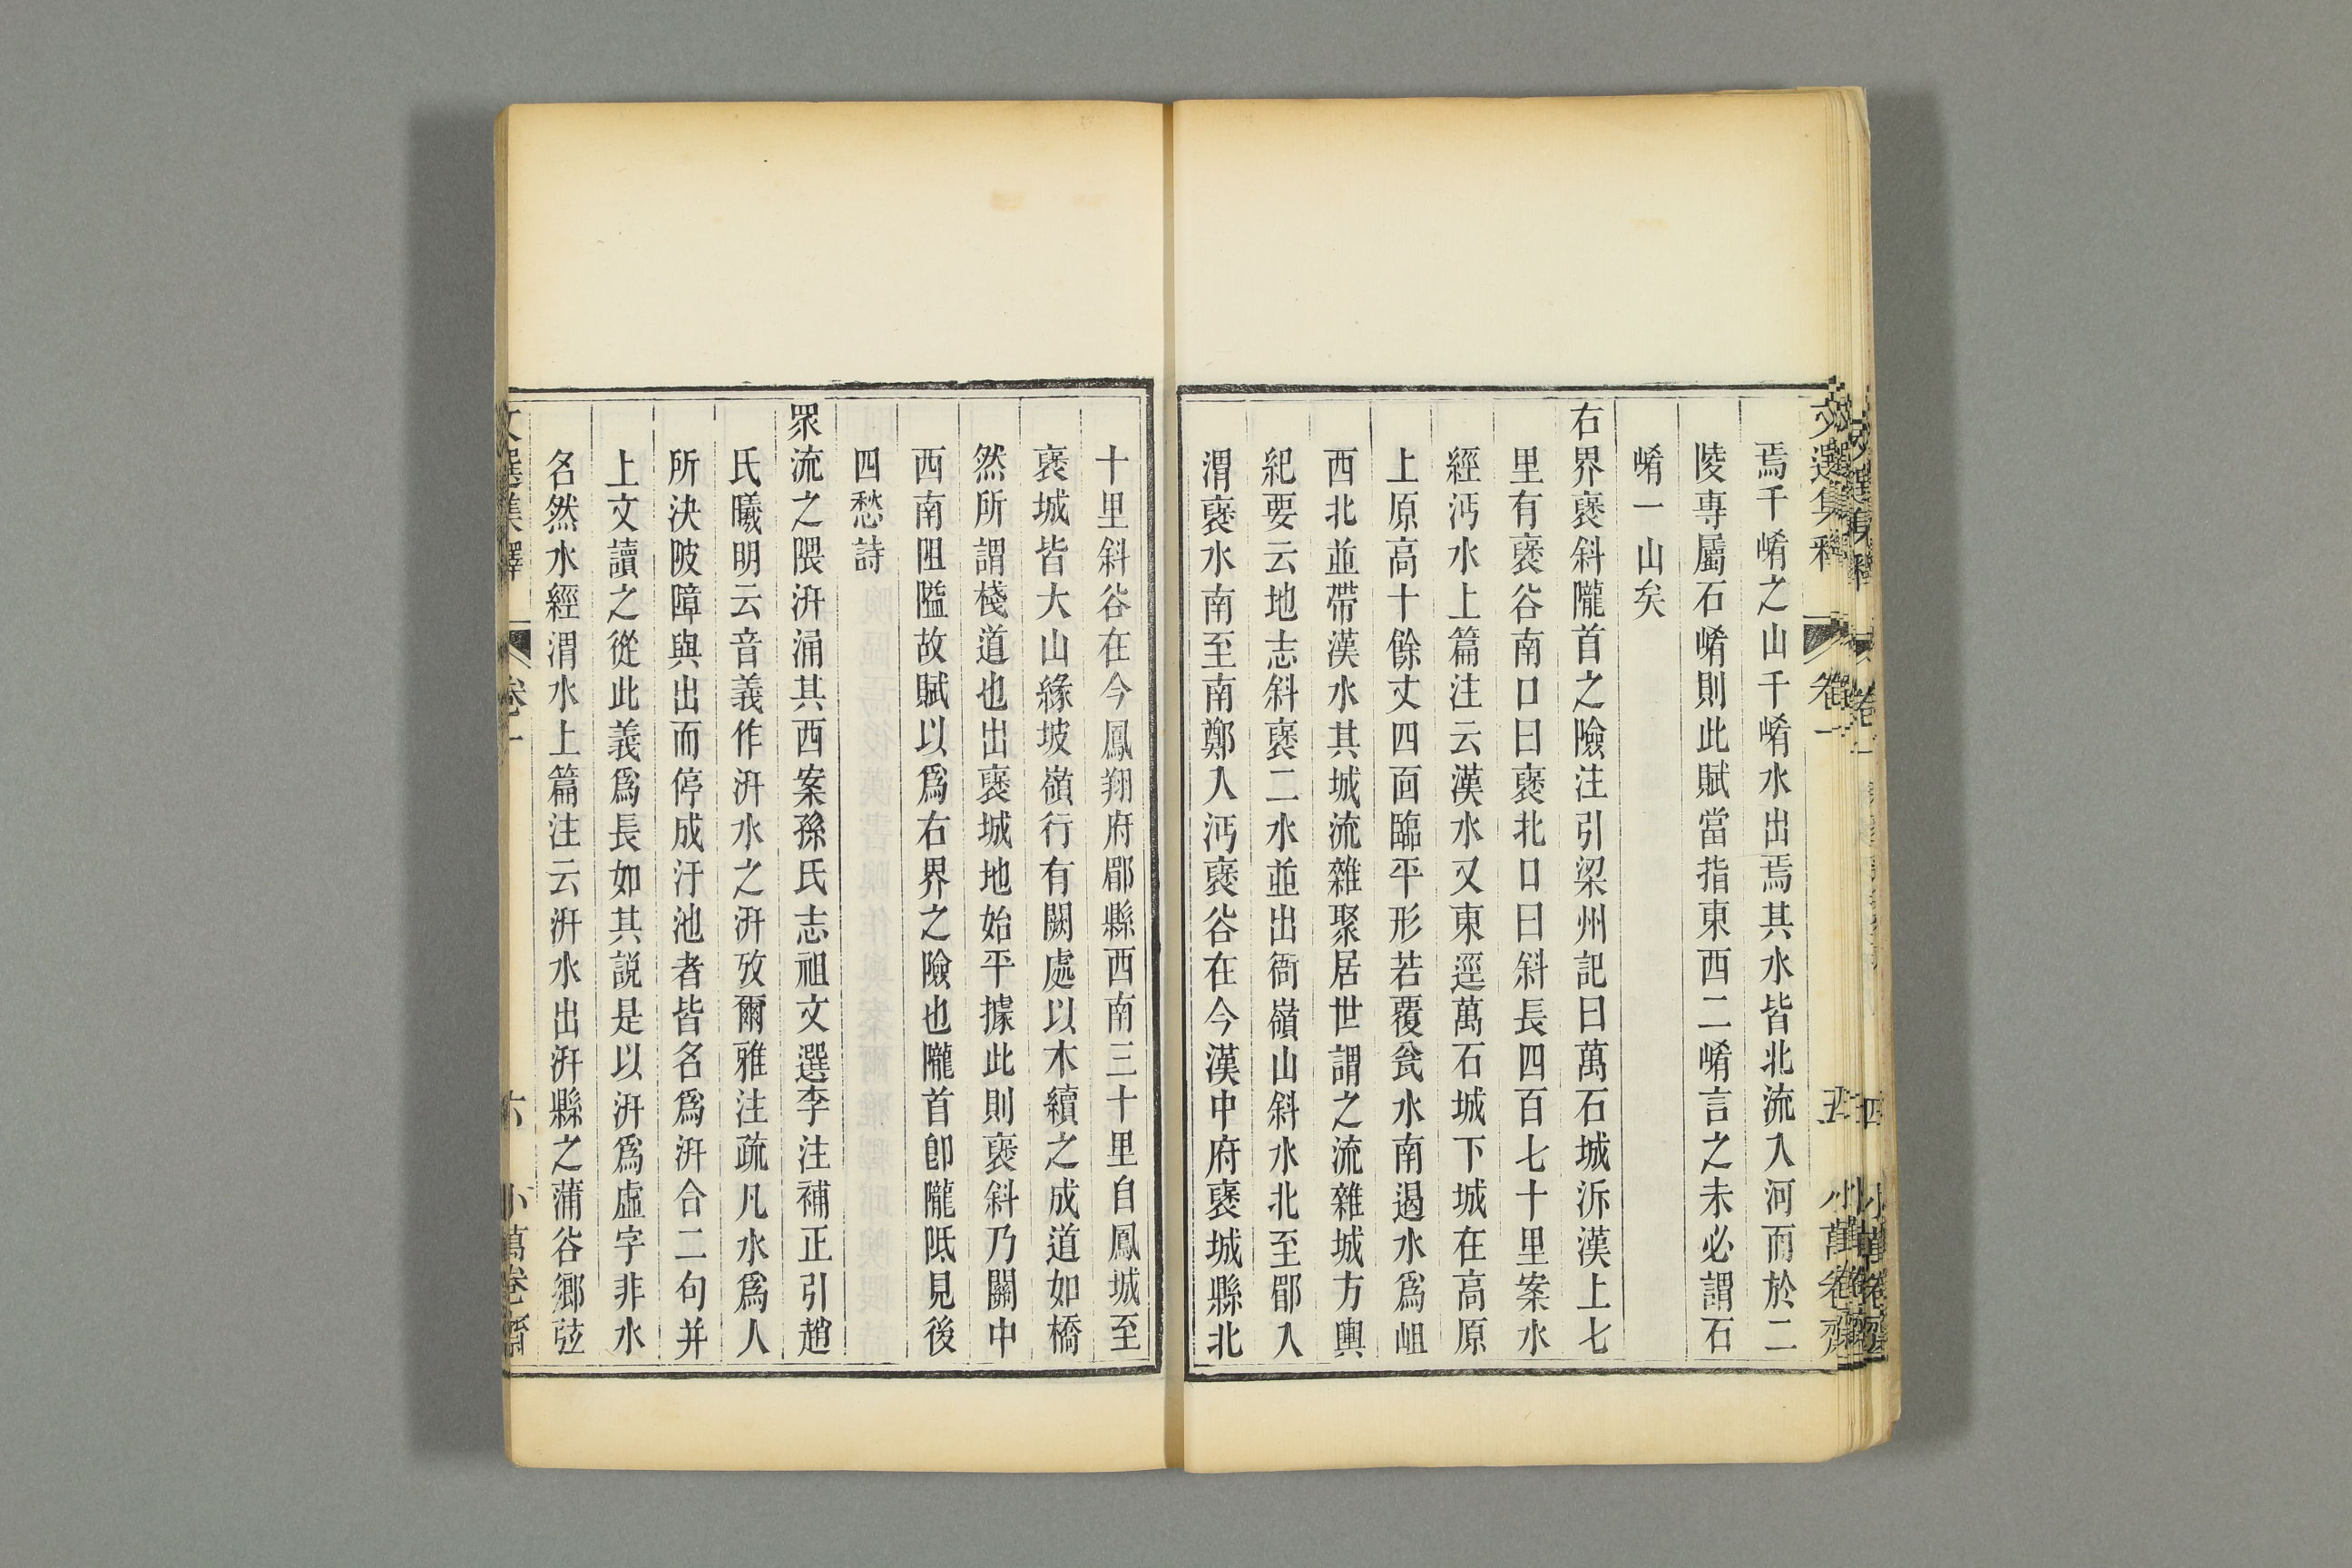 焉千崤之山千崤水出焉其水皆北流入河而於二
陵專屬石崤則此賦當指東西二崤言之未必謂石
崤一山矣
右界褒斜隴首之險注引梁州記曰萬石城泝漢上七
里有褒谷南口曰褒北口曰斜長四百七十里案水
經沔水上篇注云漢水又東逕萬石城下城在高原
上原高十餘丈四面臨平形若覆瓮水南遏水爲岨
西北並帶漢水其城流雜聚居世謂之流雜城方輿
紀要云地志斜褒二水並出衙嶺山斜水北至郿入
渭褒水南至南鄭入沔褒谷在今漢中府褒城縣北
十里斜谷在今鳳翔府郿縣西南三十里自鳳城至
褒城皆大山緣坡嶺行有闕處以木續之成道如橋
然所謂棧道也出褒城地始平據此則褒斜乃關中
西南阻隘故賦以爲右界之險也隴首卽隴阺見後
四愁詩
眾流之隈汧涌其西案孫氏志祖文選李注補正引趙
氏曦明云音義作汧水之汧攷爾雅注疏凡水爲人
所決陂障與出而停成汙池者皆名爲汧合二句并
上文讀之從此義爲長如其說是以汧爲虛字非水
名然水經渭水上篇注云汧水出汧縣之蒲谷鄉弦
文選集釋 卷一 六 小萬卷齋